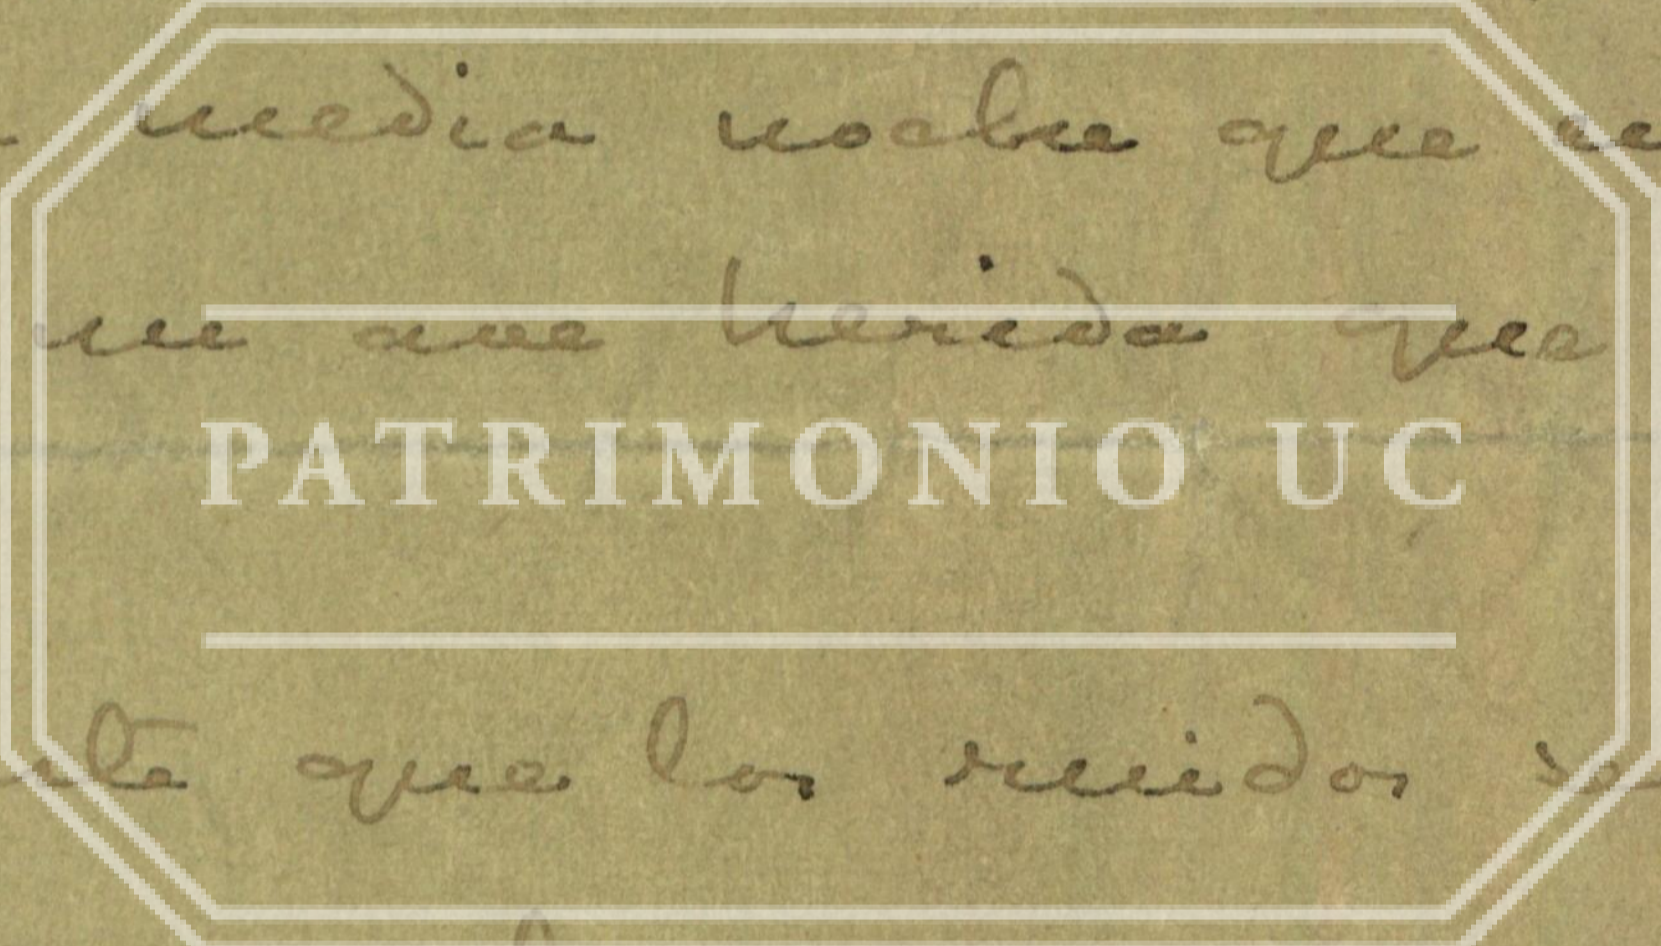 media noche que
ave herida que
PATRIMONIO UC
que los ruidos